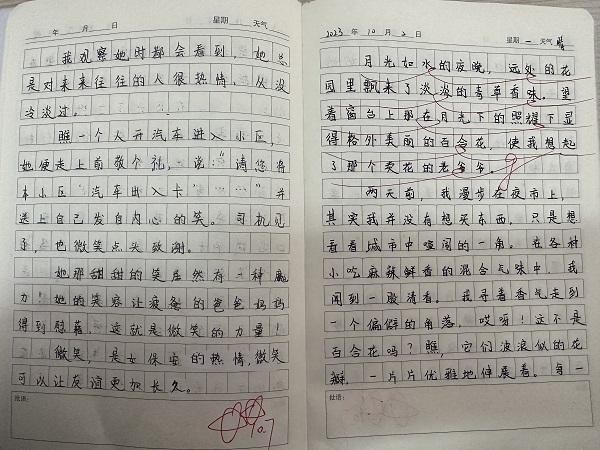 年 月 日 星期 天气
我观察她时都会看到，她总
是对来来往往的人很热情，从没
冷淡过。
瞧一个人开汽车进入小区，
她便走上前敬个礼，说："请您将
本小区'汽车出入卡'"……"并
送上自己发自内心的笑。司机见
了，也微笑点头致谢。
她那甜甜的笑居然有一种魔
力！她的笑容让疲惫的爸爸妈妈
得到慰藉。这就是微笑的力量！
微笑，是女保安的热情，微笑
可以让友谊更加长久。
批语：
10.7
2023 年 10 月 2 日 星期 一 天气 晴
月光如水的夜晚，远处的花
园里飘来了淡淡的青草香味。望
着窗台上那在月光下的照耀下显
得格外美丽的百合花，使我想起
了那个卖花的老爷爷。
两天前，我漫步在夜市上，
其实我并没有想买东西，只是想
看看城市中喧闹的一角。在各种
小吃麻辣鲜香的混合气味中，我
闻到一股清香。我寻着香气走到
一个偏僻的角落。哎呀！这不是
百合花吗？瞧，它们波浪似的花
瓣，一片片优雅地伸展着。每一
批语：